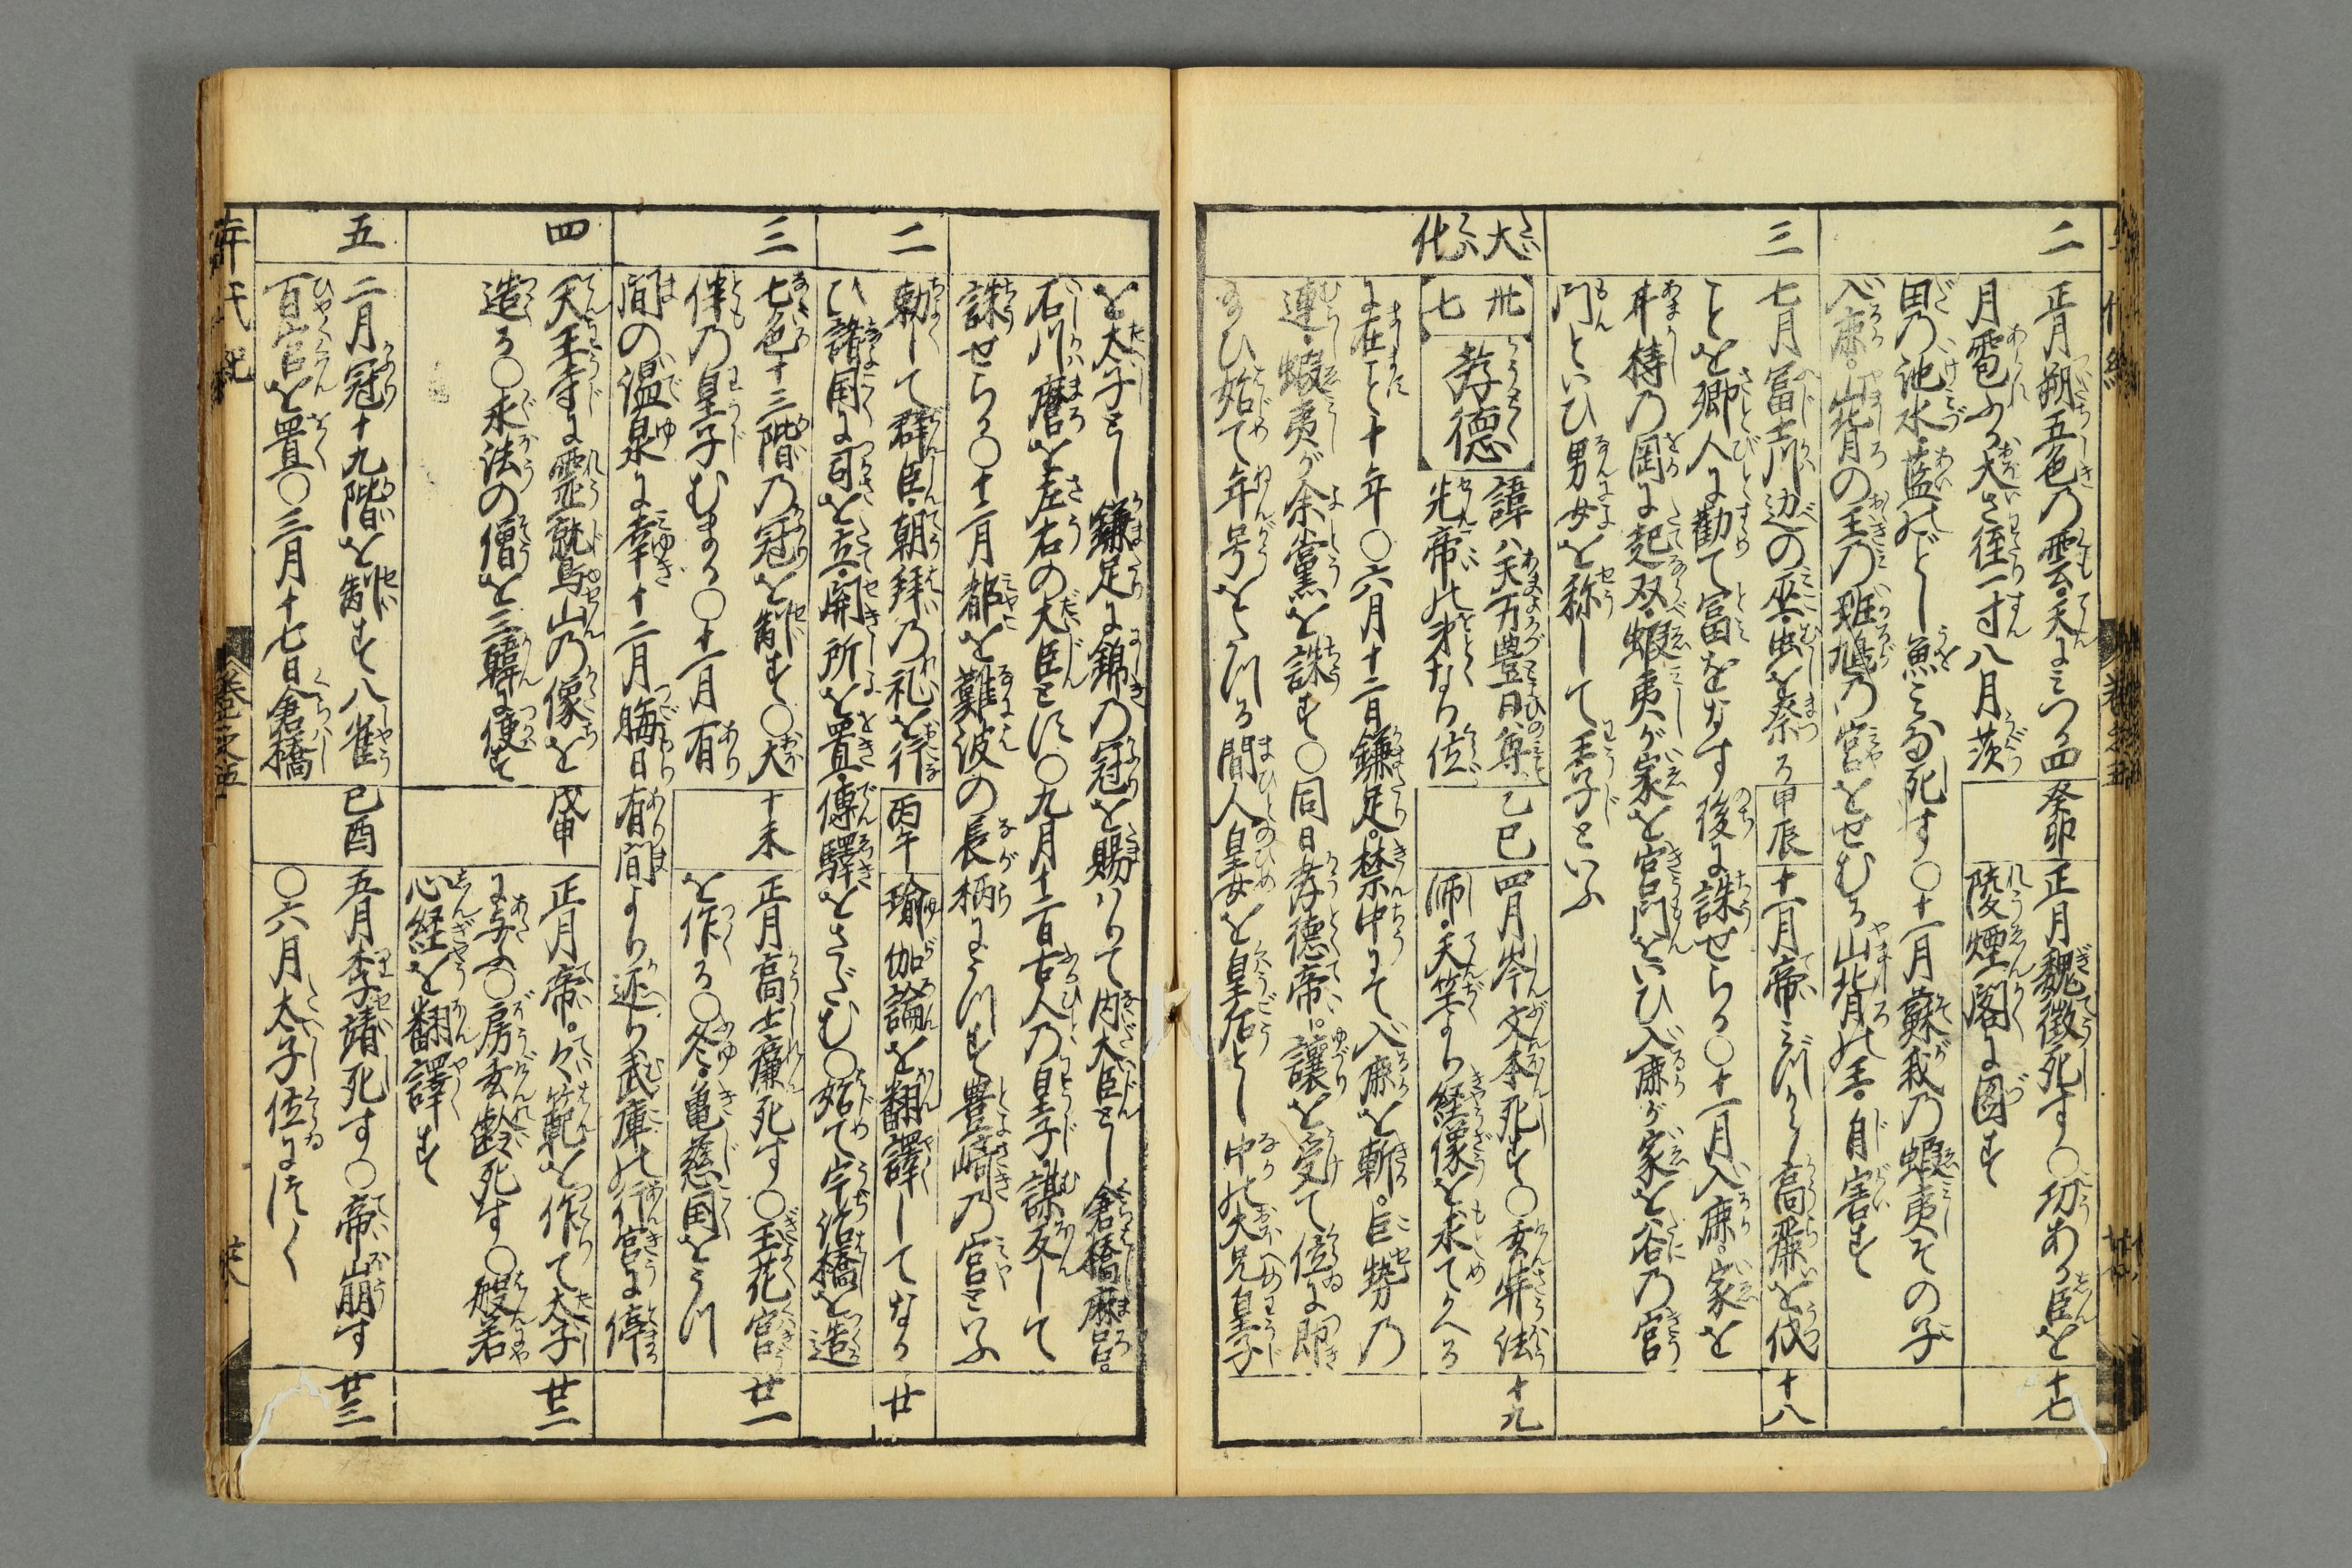 二
正月朔五色の雲天にミつ四
月雹ふる大さ径一寸八月茨
田の池水藍のどし魚ミな死す〇十一月蘇我の蝦夷その子
入鹿山背の王の班鳩の宮をせむる山背の王自害す
癸卯
正月魏徴死す〇功ある臣を
陵煙閣に図す
十七
三
七月冨士川辺の巫虫を祭る
ことを郷人に勧て富をなす後に誅せらる〇十一月入鹿家を
甘梼の岡に起双蝦夷が家を宮門といひ入鹿が家を谷の宮
門といひ男女を称して王子といふ
甲辰
十一月帝ミづから高麗を伐
十八
大化
卅七
孝徳
諱ハ天万豊日尊
先帝の弟なり位
に在こと十年〇六月十二日鎌足禁中にて入鹿を斬巨勢の
連蝦夷が余黨を誅す〇同日孝徳帝譲を受て位に即
給ひ始て年号をたつる間人皇女を皇后とし中の大兄皇子
乙巳
四月岑文本死す〇玄弉法
師天竺より経像を求てかへる
十九
を太子とし鎌足に錦の冠を賜ハりて内大臣とし倉橋麻呂
石川麿を左右の大臣とす〇九月十二日古人の皇子謀反して
誅せらる〇十二月都を難波の長柄にうつす豊崎の宮といふ
二
勅して群臣朝拜の礼を行
ひ諸国に司を立関所を置傳驛をさだむ〇始て宇治橋を造
丙午
瑜伽論を翻譯してなる
廿
三
七色十三階の冠を制す〇大
伴の皇子むまる〇十一月有
間の温泉に幸十二月晦日有間より還り武庫の行宮に停
丁未
正月高士廉死す〇玉花宮
を作る〇冬亀慈国をうつ
廿一
四
天王寺に霊鷲山の像を
造る〇求法の僧を三韓に使す
戊申
正月帝々範を作て太子
に与ふ〇房玄齢死す〇般若
心経を翻譯す
廿二
五
二月冠十九階を制す八省
百官を置〇三月十七日倉橋
己酉
五月李靖死す〇帝崩す
〇六月太子位につく
廿三
年代紀
巻之五